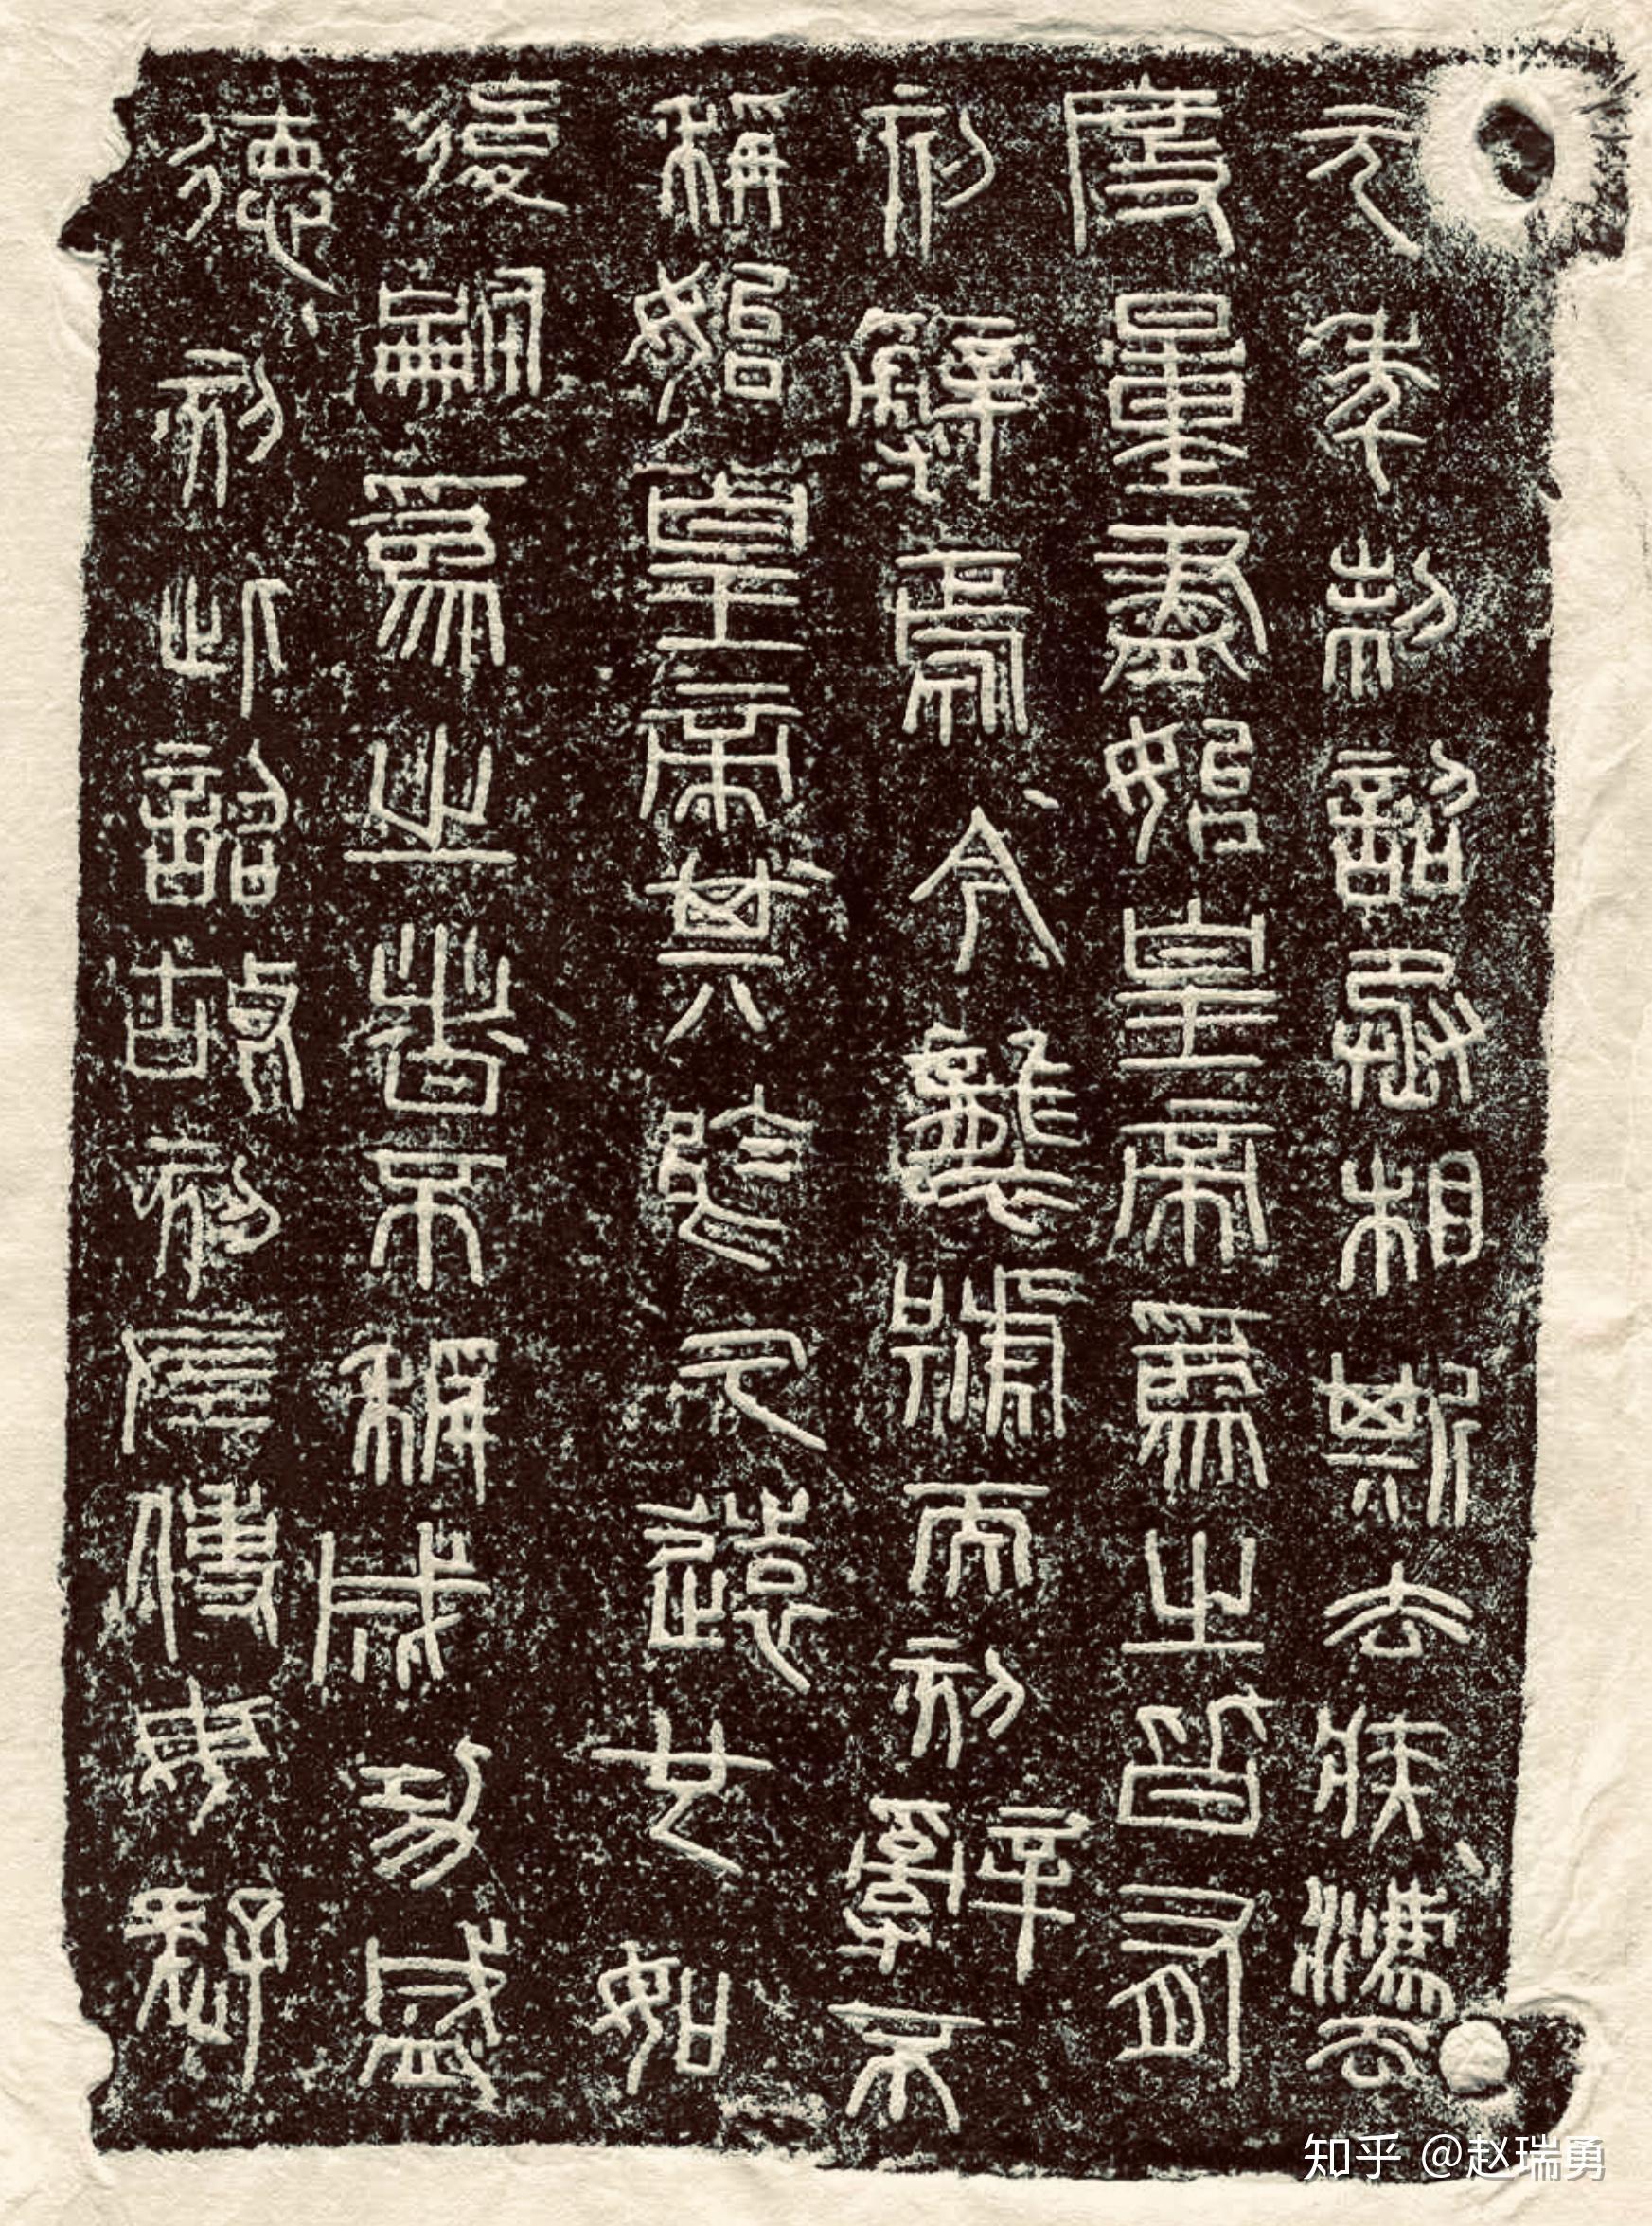 元年制詔丞相斯去疾灋
度量盡始皇帝爲之皆有
刻辭焉今襲號而刻辭不
稱始皇帝其於久遠也如
後嗣爲之者不稱成功盛
德刻此詔故刻左使毋疑
知乎 @赵瑞勇